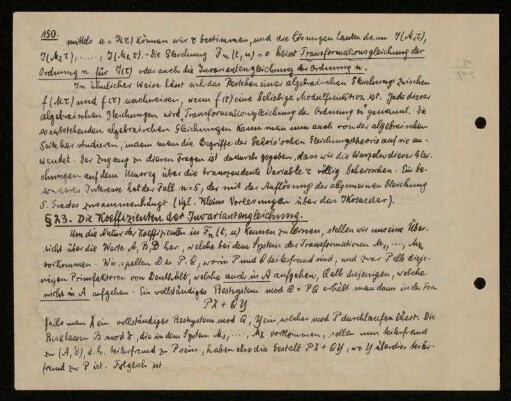 150.
mittels u = J(τ) können wir τ bestimmen, und die Lösungen lauten dann J(M₁τ),
J(M₂τ), . . . . , J(Mₙτ). - Die Gleichung Fₙ(t, u) = 0 heisst Transformationsgleichung der
Ordnung n für J(τ) oder auch die Invariantengleichung der Ordnung n.
In ähnlicher Weise lässt sich das Bestehen einer algebraischen Gleichung zwischen
f(Mτ) und f(τ) nachweisen, wenn f(τ) eine beliebige Modulfunktion ist. Jede dieser
algebraischen Gleichungen wird Transformationsgleichung der Ordnung n genannt. Die
so entstehenden algebraischen Gleichungen kann man nun auch von der algebraischen
Seite her studieren, indem man die Begriffe der Galois'schen Gleichungstheorie auf sie an-
wendet. Der Zugang zu diesen Fragen ist dadurch gegeben, dass wir die Wurzeln dieser Glei-
chungen auf dem Umweg über die transzendente Variable τ völlig beherrschen. Ein be-
sonderes Interesse hat der Fall n = 5, der mit der Auflösung der allgemeinen Gleichung
5. Grades zusammenhängt (Vgl. Klein Vorlesungen über das Ikosaeder).
§ 23. Die Koeffizienten der Invariantengleichung.
Um die Natur der Koeffizienten in Fₙ(t, u) kennen zu lernen, stellen wir uns eine Über-
sicht über die Werte A, B, D her, welche bei dem System der Transformationen M₁, ..., Mₙ
vorkommen. Wir spalten D in P·Q, worin P und Q teilerfremd sind, und zwar P alle dieje-
nigen Primfaktoren von D enthält, welche auch in A aufgehen, Q alle diejenigen, welche
nicht in A aufgehen. Ein vollständiges Restsystem mod D = PQ erhält man dann in der Form
PX + QY
falls man X ein vollständiges Restsystem mod Q, Y ein, welches mod P durchlaufen lässt. Die
Restklassen B mod D, die in dem System M₁, ..., Mₙ vorkommen, sollen nun teilerfremd
zu (A, D), d.h. teilerfremd zu P sein, haben also die Gestalt PX + QY, wo Y überdies teiler-
fremd zu P ist. Folglich ist